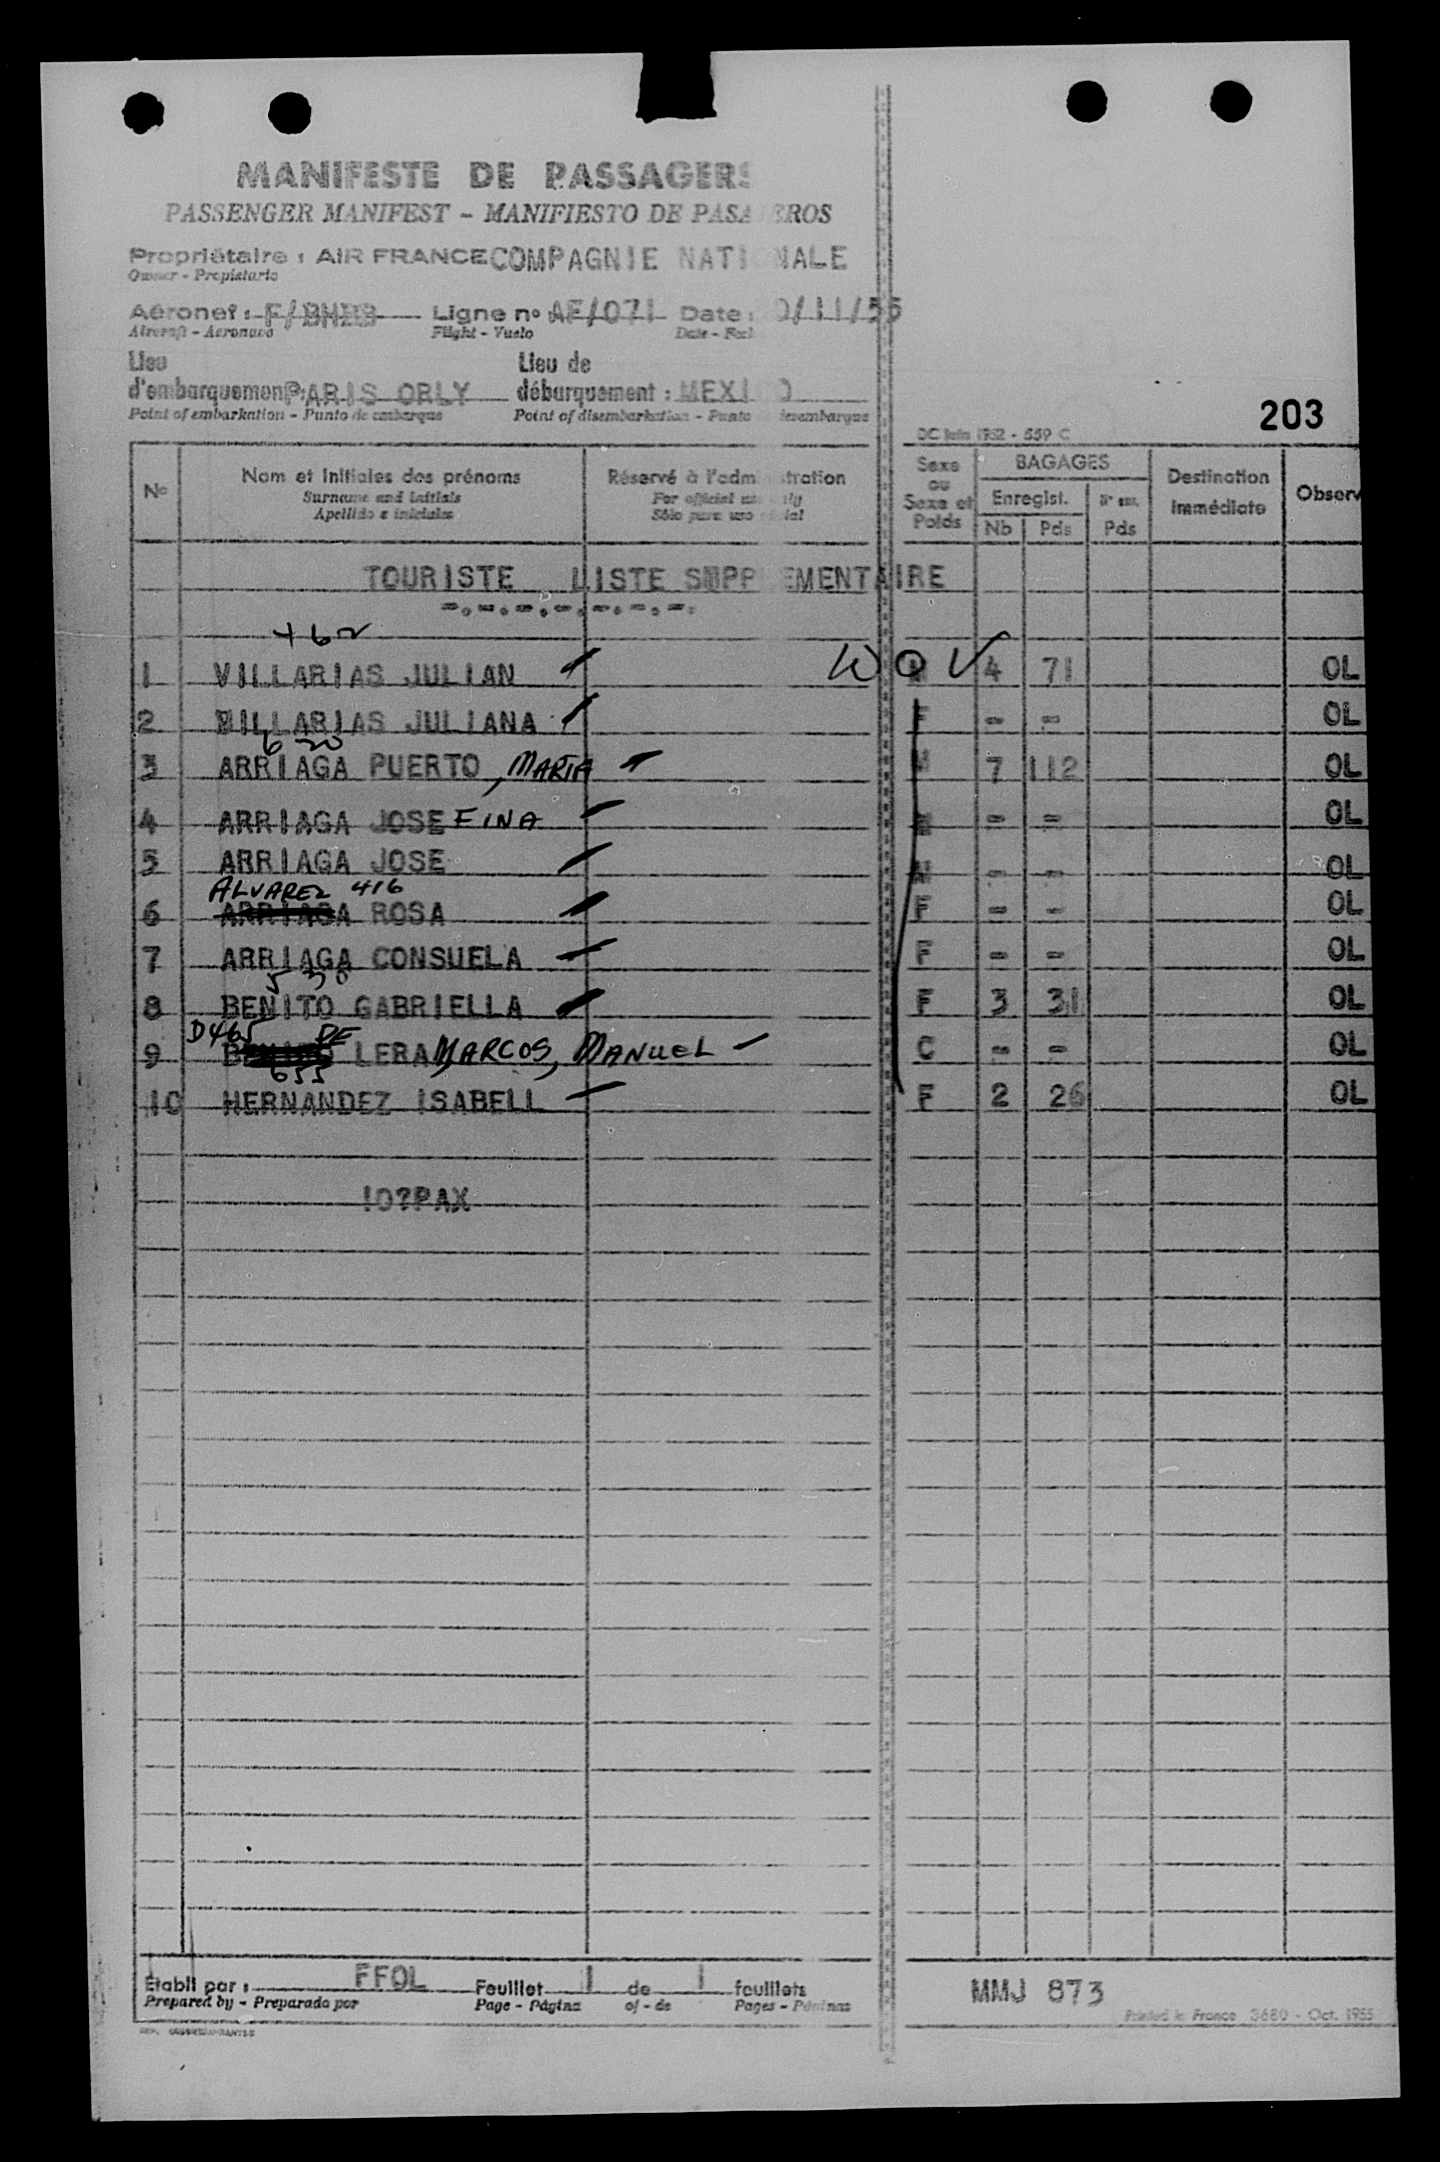 MANIFESTE DE PASSAGERS
PASSENGER MANIFEST - MANIFIESTO DE PASA EROS
Propriétaire : AIR FRANCE COMPAGNIE NATI NALE
Owner - Propietario
Aéronef : F/BHBB Ligne nº AF/071 Date : 0/11/55
Aircraft - Aeronave Flight - Vuelo Date - Fech
Lieu d'embarquement : PARIS ORLY Lieu de débarquement : MEXI O
Point of embarkation - Punto de embarque Point of disembarkation - Punto desembarque
203
DC Juin 1952 - 559 C
Nº Nom et initiales des prénoms Réservé à l'adm stration Sexe ou Sexe et Poids BAGAGES Destination immédiate Observ
Surname and initials For official us ly Enregist.
Apellido e iniciales Sólo para uso cial Nb Pds Pds
TOURISTE LISTE SUPP EMENTAIRE
-.-.-.-.-.-.-.
462
1 VILLARIAS JULIAN 4 71 OL
2 VILLARIAS JULIANA F - - OL
620
3 ARRIAGA PUERTO, MARIA 7 112 OL
4 ARRIAGA JOSEFINA - - OL
5 ARRIAGA JOSE - - OL
ALVAREZ 416
6 ARRIAGA ROSA F - - OL
7 ARRIAGA CONSUELA F - - OL
530
8 BENITO GABRIELLA F 3 31 OL
D465 DE
9 LERA MARCOS, MANUEL C - - OL
655
10 HERNANDEZ ISABELL F 2 26 OL
10?PAX
Etabli par : FFOL Feuillet 1 de 1 feuillets MMJ 873
Prepared by - Preparado por Page - Página of - de Pages - Páginas
Printed in France 3680 - Oct. 1955